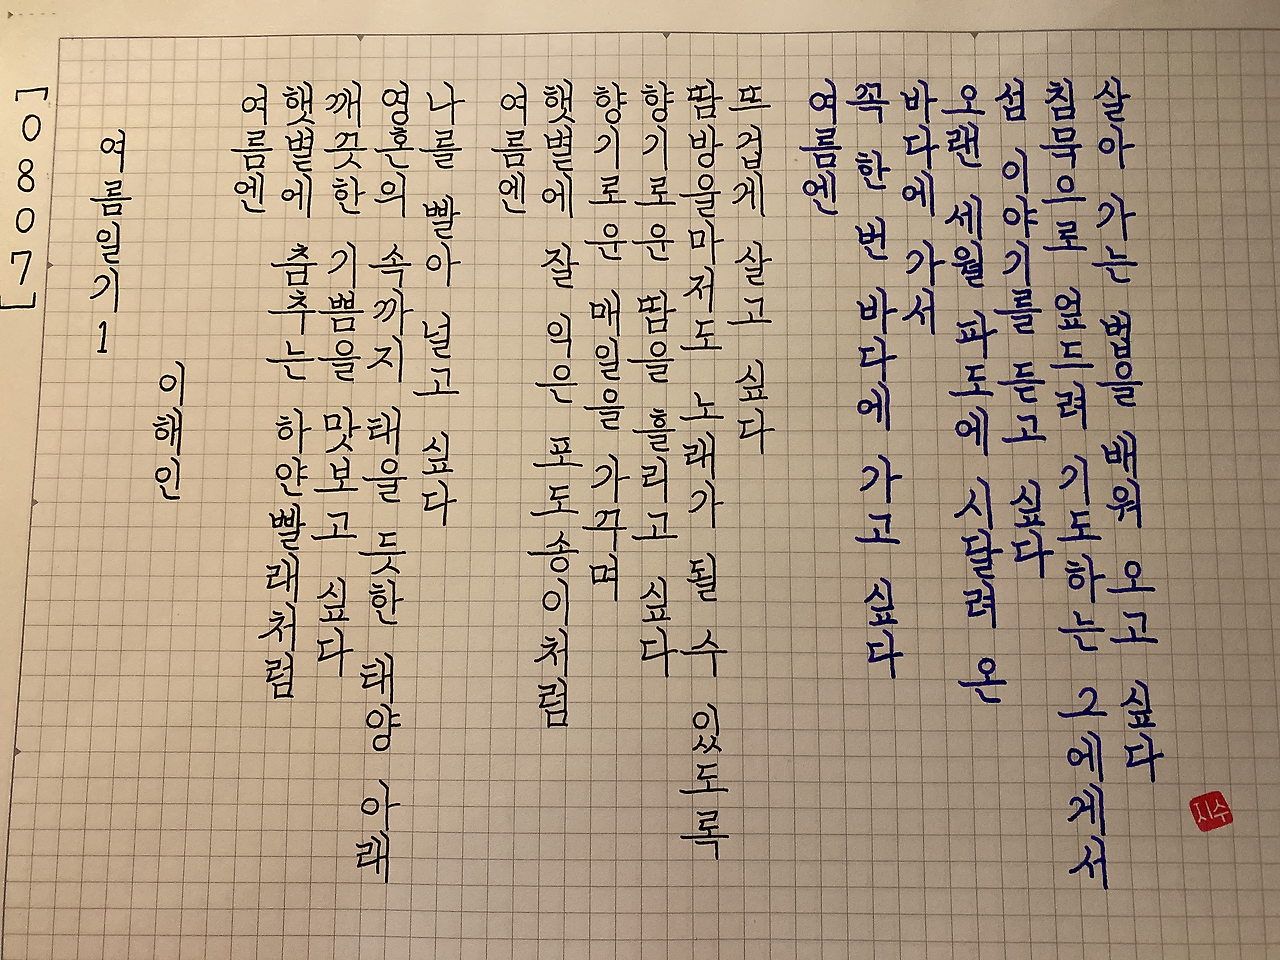 [0807]
여름일기 1
이해인
여름엔
햇볕에 춤추는 하얀 빨래처럼
깨끗한 기쁨을 맛보고 싶다
영혼의 속까지 태울 듯한 태양 아래
나를 빨아 널고 싶다
여름엔
햇볕에 잘 익은 포도송이처럼
향기로운 매일을 가꾸며
향기로운 땀을 흘리고 싶다
땀방울마저도 노래가 될 수 있도록
뜨겁게 살고 싶다
여름엔
꼭 한 번 바다에 가고 싶다
바다에 가서
오랜 세월 파도에 시달려 온
섬 이야기를 듣고 싶다
침묵으로 엎드려 기도하는 그에게서
살아 가는 법을 배워 오고 싶다
지수